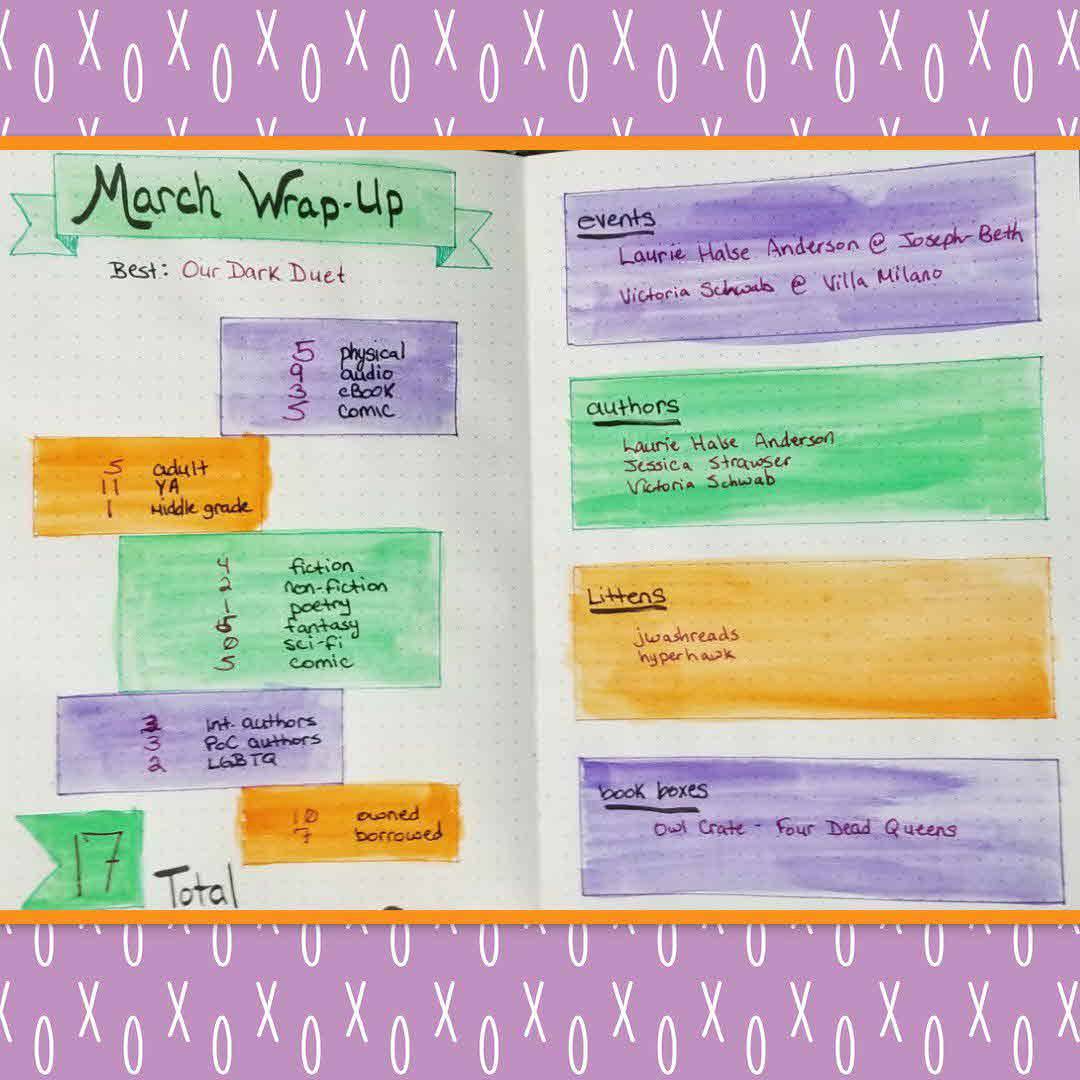 March Wrap-Up
Best: Our Dark Duet
5 physical
9 audio
3 eBook
5 comic
5 adult
11 YA
1 Middle grade
4 fiction
2 non-fiction
1 poetry
fantasy
0 sci-fi
5 comic
Int. authors
3 PoC authors
2 LGBTQ
10 owned
7 borrowed
17 Total
events
Laurie Halse Anderson @ Joseph-Beth
Victoria Schwab @ Villa Milano
authors
Laurie Halse Anderson
Jessica Strawser
Victoria Schwab
Littens
jwashreads
hyperhawk
book boxes
Owl Crate - Four Dead Queens